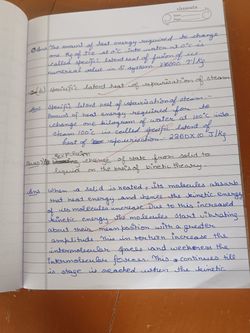 classmate
Date
Page
Ans: The amount of heat energy required to change
one Kg of ice at 0°c into water at 0°c is
called specific latent heat of fusion of ice
numerical value in SI system J/Kg
(b) Specific latent heat of vapourisation of steam
Ans: Specific latent heat of vapourisation of steam -
Amount of heat energy required for to
change one kilogram of water at 100°c into
steam 100°c is called specific latent of
heat of vapourisation - J/Kg
Explain
change of state from solid to
liquid on the basis of kinetic theory.
Ans When a solid is heated, its molecules absorb
that heat energy and hence the kinetic energy
of its molecules increase. Due to this increased
kinetic energy the molecules start vibrating
about their mean position with a greater
amplitude. This in return increase the
intermolecular spaces and weakness the
intermolecular forces. This continues till
is stage is reached when the kinetic